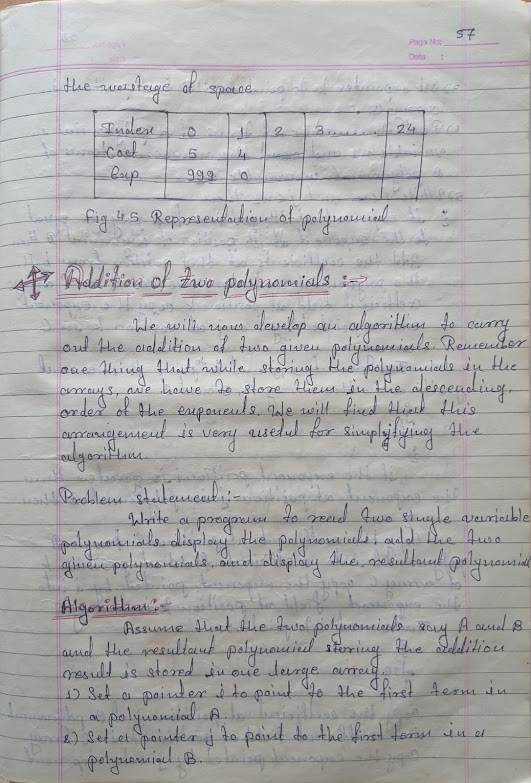 Page No: 57
Date :
the wastage of space
Index 0 1 2 3........ 24
Coef 5 4
Exp 999 0
Fig 4.5 Representation of polynomial :
Addition of two polynomials :-→
We will now develop an algorithm to carry
out the addition of two given polynomials. Remember
one thing that while storing the polynomials in the
arrays, we have to store them in the descending
order of the exponents. We will find that this
arrangement is very useful for simplifying the
algorithm
Problem statement :-
Write a program to read two single variable
polynomials, display the polynomials, add the two
given polynomials, and display the, resultant polynomial
Algorithm :-
Assume that the two polynomials say A and B
and the resultant polynomial storing the addition
result is stored in one large array.
1) Set a pointer i to point to the first term in
a polynomial A.
2) Set a pointer j to point to the first term in a
polynomial B.